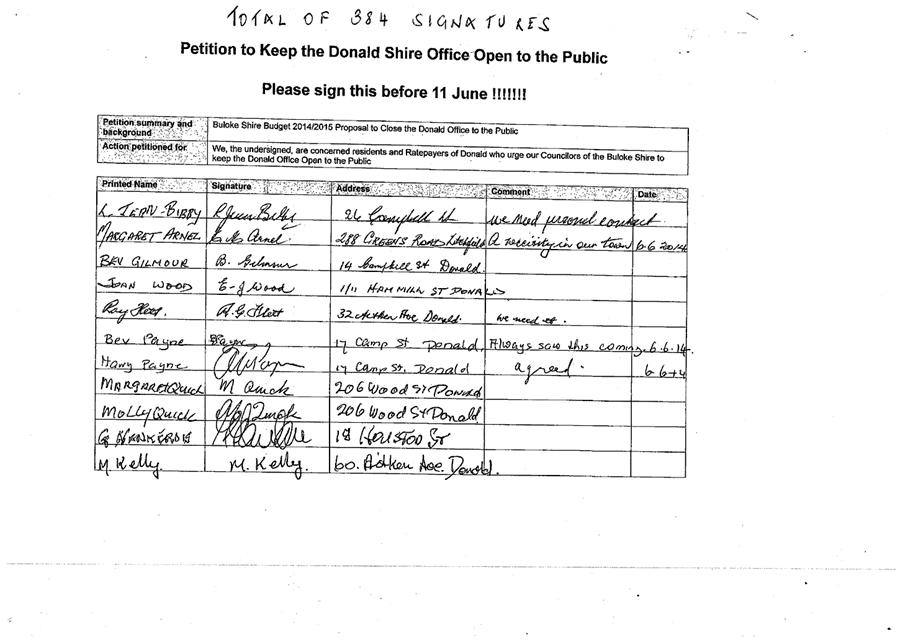 TOTAL OF 384 SIGNATURES
Petition to Keep the Donald Shire Office Open to the Public
Please sign this before 11 June !!!!!!!
Petition summary and background Buloke Shire Budget 2014/2015 Proposal to Close the Donald Office to the Public
Action petitioned for We, the undersigned, are concerned residents and Ratepayers of Donald who urge our Councilors of the Buloke Shire to
keep the Donald Office Open to the Public
Printed Name Signature Address Comment Date
L. JEAN-BIBBY 26 Campbell St we need personal contact
MARGARET ARNEL Arnel. 288 GREENS ROAD Litchfield A necissity in our town 6-6 2014
BEV GILMOUR B. Gilmour 14 Campbell St Donald.
JOAN WOOD E-J Wood 1/11 HAMMILL ST DONALD
Ray 32 Aitken Ave Donald. we need it.
Bev Payne Payne 17 Camp St Donald. Always saw this coming. 6.6.14
Harry Payne 17 Camp St. Donald agreed.
MARGARET QUICK M Quick 206 Wood St Donald
MOLLY QUICK 206 Wood St Donald
18 HOUSTON ST
M Kelly. M. Kelly. 60. Aitken Ave. Donald.